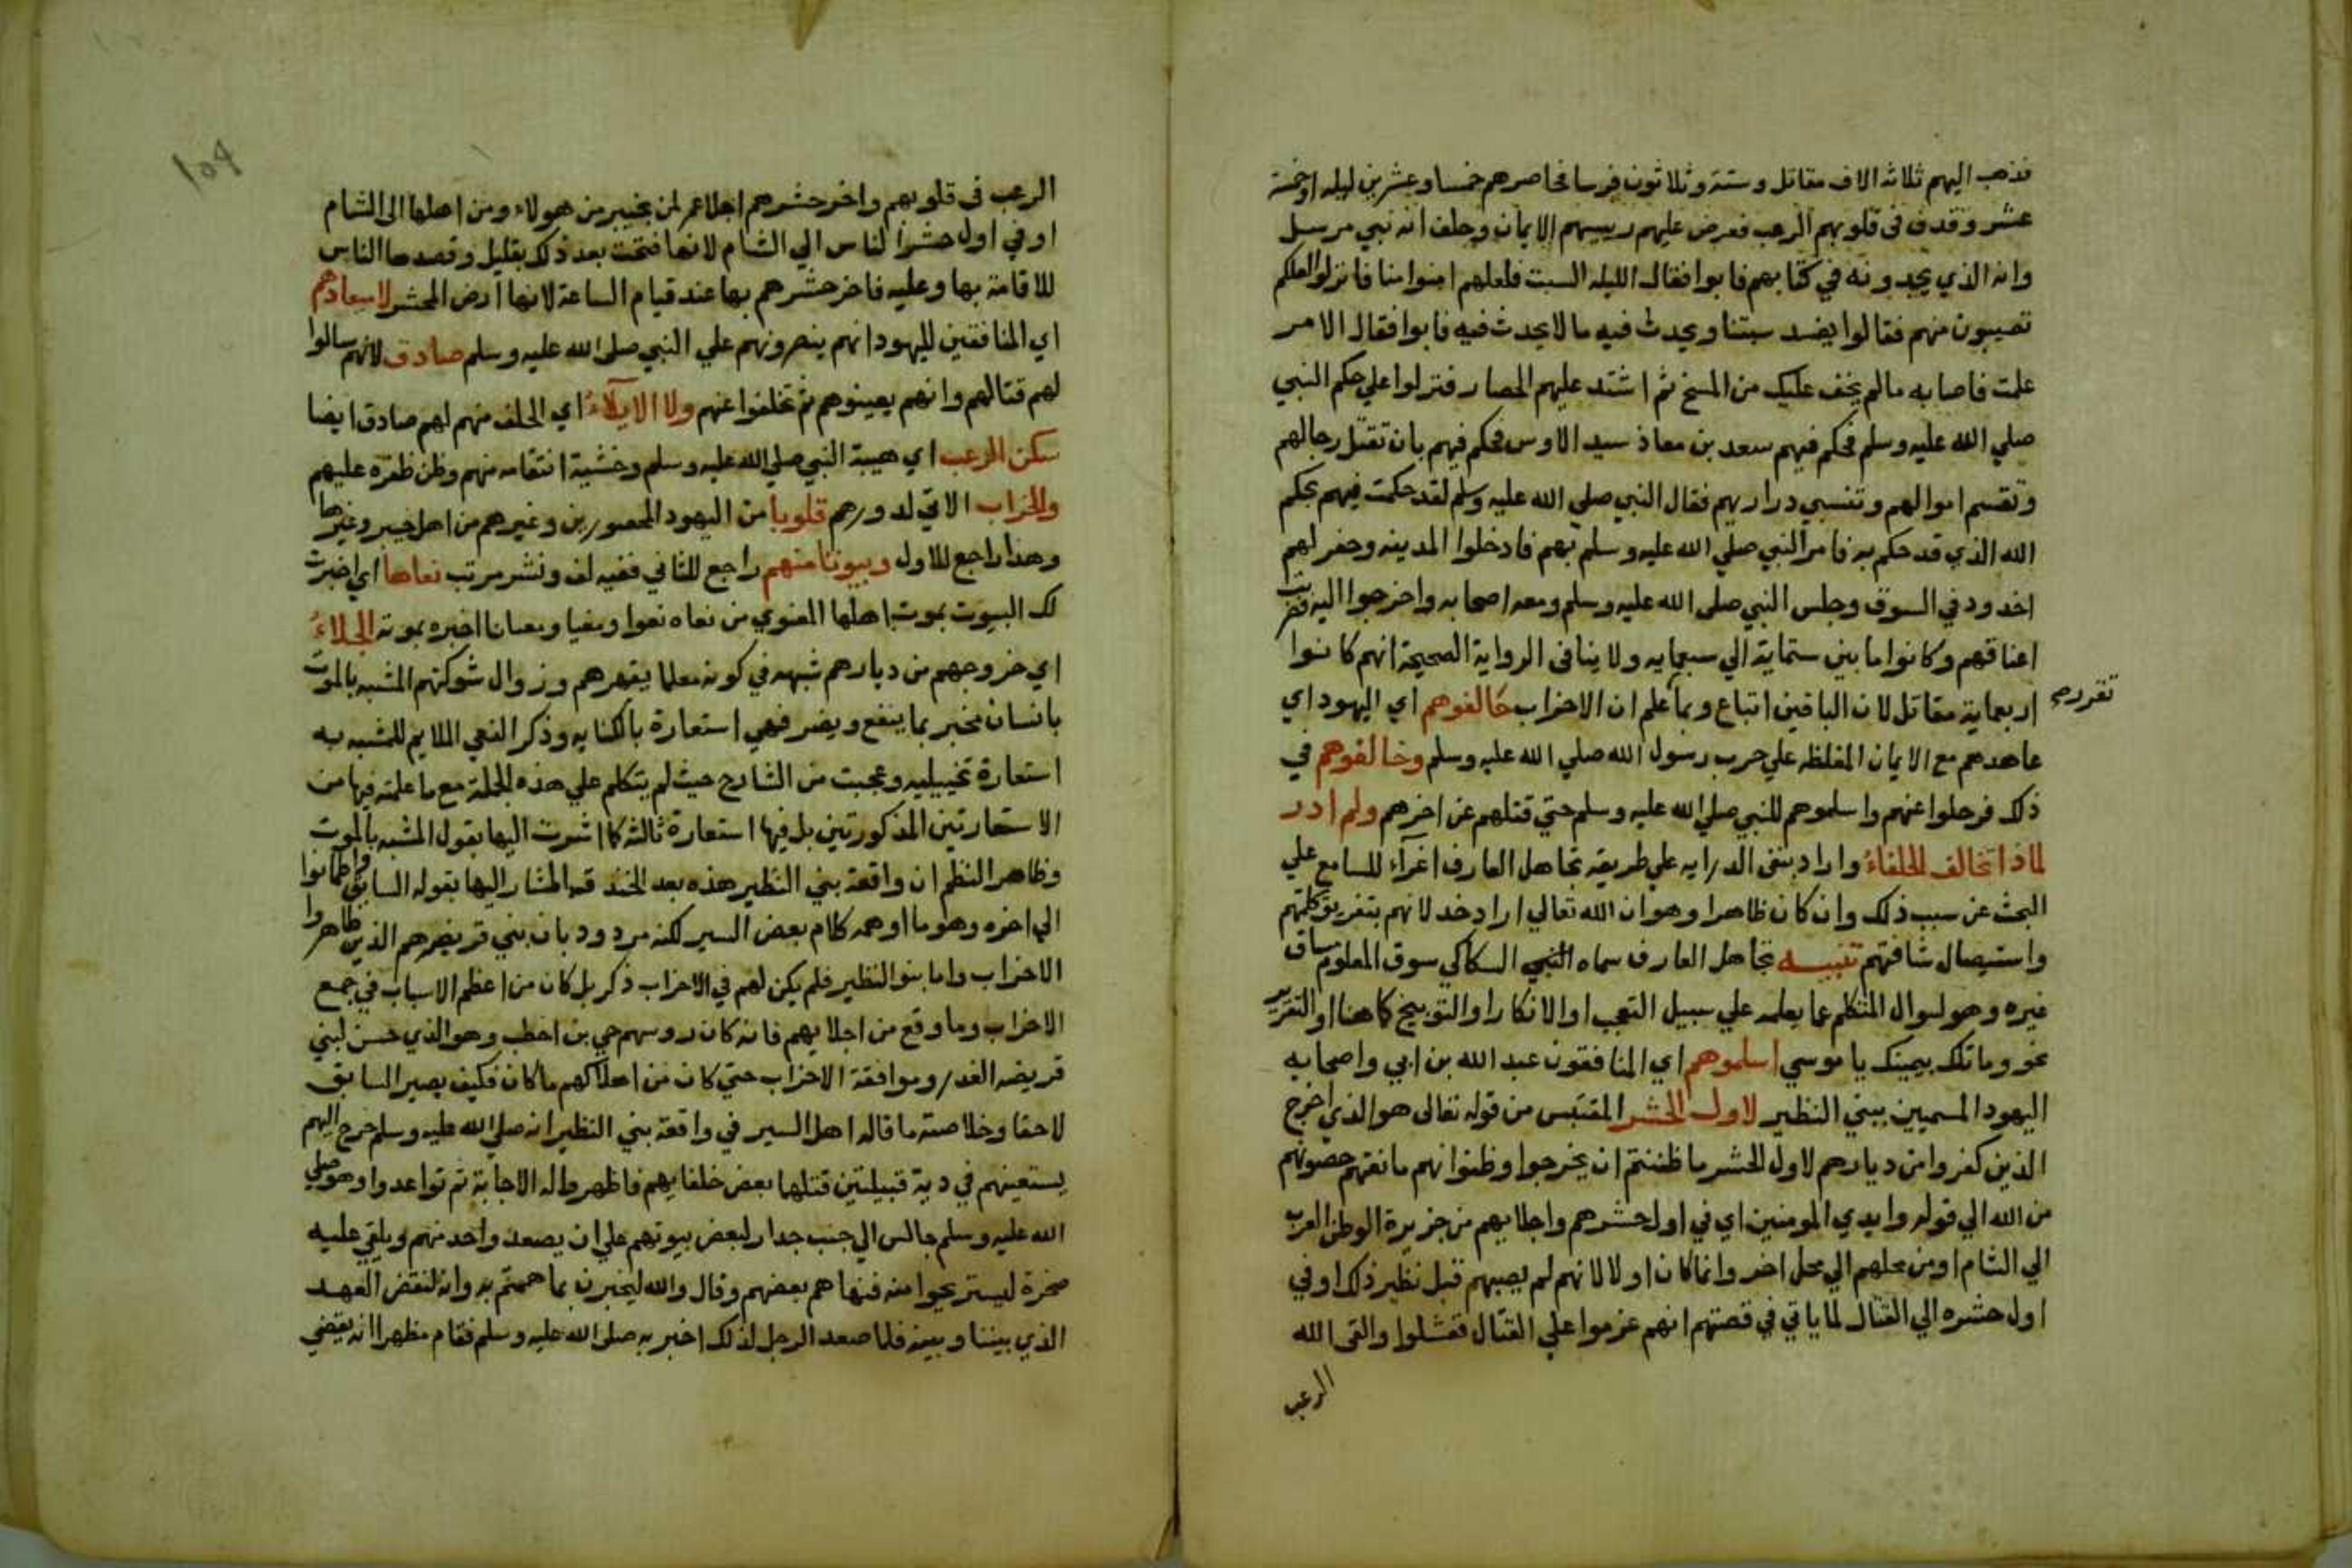 فذهب اليهم ثلاثه الاف مقاتل وستة وثلاثون فرسا فحاصرهم خمسا وعشرين ليله او خمسة
عشر وقدف في قلوبهم الرعب فعرض عليهم رييسهم الايمان وحلف انه نبي مرسل
وانه الذي يجدونه في كتابهم فابوا فقال الليله السبت فلعلهم امنوا منا فانزلوا لعلكم
تصيبون منهم فقالوا يفسد سبتنا ويحدث فيه ما لا يحدث فيه فابوا فقال الامر
علمت فاصابه ما لم يخف عليك من المسخ ثم اشتد عليهم الحصار فنزلوا علي حكم النبي
صلي الله عليه وسلم فحكم فيهم سعد بن معاذ سيد الاوس فحكم فيهم بان تقتل رجالهم
وتقسم اموالهم وتنسبي دراريهم فقال النبي صلي الله عليه وسلم لقد حكمت فيهم بحكم
الله الذي قد حكم به فامر النبي صلي الله عليه وسلم بهم فادخلوا المدينه وحفر لهم
اخدود في السوق وجلس النبي صلى الله عليه وسلم ومعه اصحابه واخرجوا اليه فضربت
اعناقهم وكانوا ما بين ستماية الي سبعمايه ولا ينافي الرواية الصحيحة انهم كانوا
اربعماية مقاتل لان الباقين اتباع وبما علم ان الاحزاب حالفوهم اي اليهود اي
تقرر
عاهدهم مع الايمان المغلظه علي حرب رسول الله صلي الله عليه وسلم وخالفوهم في
ذلك فرحلوا عنهم واسلموهم للنبي صلي الله عليه وسلم حتي قتلهم عن اخرهم ولم ادر
لماذا تخالف الحلفاء واراد بنفي الدرايه علي طريقه تجاهل العارف اغرآء للسامع علي
البحث عن سبب ذلك وان كان ظاهرا وهو ان الله تعالي اراد خدلانهم بتفريق كلمتهم
واستيصال شافتهم تنبيـه تجاهل العارف سماه السكاكي سوق المعلوم مساق
غيره وهو لسوال المتكلم عما يعلمه علي سبيل التعجب او الانكار او التوبيخ كما هنا او التقرير
نحو وما تلك بيمينك يا موسي اسلموهم اي المنافقون عبد الله بن ابي واصحابه
اليهود المسميين ببني النظير لاول الحشر المقتبس من قوله تعالى هو الذي اخرج
الذين كفروا من ديارهم لاول الحشر ما ظننتم ان يخرجوا وظنوا انهم مانعتهم حصونهم
من الله الي قوله وايدي المومنين اي في اول حشرهم واجلايهم من جزيرة الوطن العرب
الي الشام او من محلهم الي محل اخر وانما كان اولا لانهم لم يصبهم قبل نظير ذلك او في
اول حشره الي القتال لما ياتي في قصتهم انهم عزموا علي القتال ففشلوا والقى الله
الرعب
الرعب في قلوبهم واخر حشرهم اجلا عمر لمن بخيبر من هولاء ومن اهلها الى الشام
او في اول حشر الناس الي الشام لانها فتحت بعد ذلك بقليل وقصدها الناس
للاقامة بها وعليه فاخر حشرهم بها عند قيام الساعة لانها ارض المحشر لا ميعادهم
اي المنافقين لليهود انهم ينصرونهم علي النبي صلى الله عليه وسلم صادق لانهم سالوا
لهم قتالهم وانهم يعينوهم ثم تخلفوا عنهم ولا الايلاء اي الحلف منهم لهم صادق ايضا
سكن الرعب اي هيبة النبي صلي الله عليه وسلم وخشية انتقامه منهم وظن ظفره عليهم
والخراب الاتي لدورهم قلوبا من اليهود المحصورين وغيرهم من اهل خيبر وغيرها
وهذا راجع للاول وبيوتا منهم راجع للثاني ففيه لف ونشر مرتب نعاها اي اخبرت
لك البيوت بموت اهلها المعنوي من نعاه نعوا ونعيا ونعيانا اخبره بموته الجلاء
اي خروجهم من ديارهم شبهه في كونه معلما بقهرهم وزوال شوكتهم المشبه بالموت
بانسان مخبر بما ينفع ويضر فهي استعارة بالكنايه وذكر النعي الملايم للمشبه به
استعارة تخييليه وعجبت من الشارح حيث لم يتكلم علي هذه الجملة مع ما علمته فيها من
الاستعارتين المذكورتين بل فيها استعارة ثالثة كما اشرت اليها بقول المشبه بالموت
وظاهر النظم ان واقعة بني النظير هذه بعد الخندق المشار اليها بقوله السابق واطمانوا
الي اخره وهو ما اوهمه كلام بعض السير لكنه مردود بان بني قريضه هم الذين ظاهروا
الاحزاب واما بنو النظير فلم يكن لهم في الاحزاب ذكر بل كان من اعظم الاسباب في جمع
الاحزاب وما وقع من اجلايهم فانه كان روسهم حي بن اخطب وهو الذي حسن لبني
قريضه الغدر وموافقة الاحزاب حتي كان من اهلاكهم ما كان فكيف يصير السابق
لاحقا وخلاصة ما قاله اهل السير في واقعة بني النظير انه صلي الله عليه وسلم خرج اليهم
يستعينهم في دية قبيلتين قتلها بعض خلفايهم فاظهروا له الاجابة ثم تواعدوا وهو صلي
الله عليه وسلم جالس الي جنب جدار لبعض بيوتهم علي ان يصعد واحد منهم ويلقي عليه
صخرة ليستريحوا منه فنهاهم بعضهم وقال والله ليخبرن بما هممتم به وانه لنقض العهد
الذي بيننا وبينه فلما صعد الرجل لذلك اخبر به صلى الله عليه وسلم فقام مظهرا انه يقضي